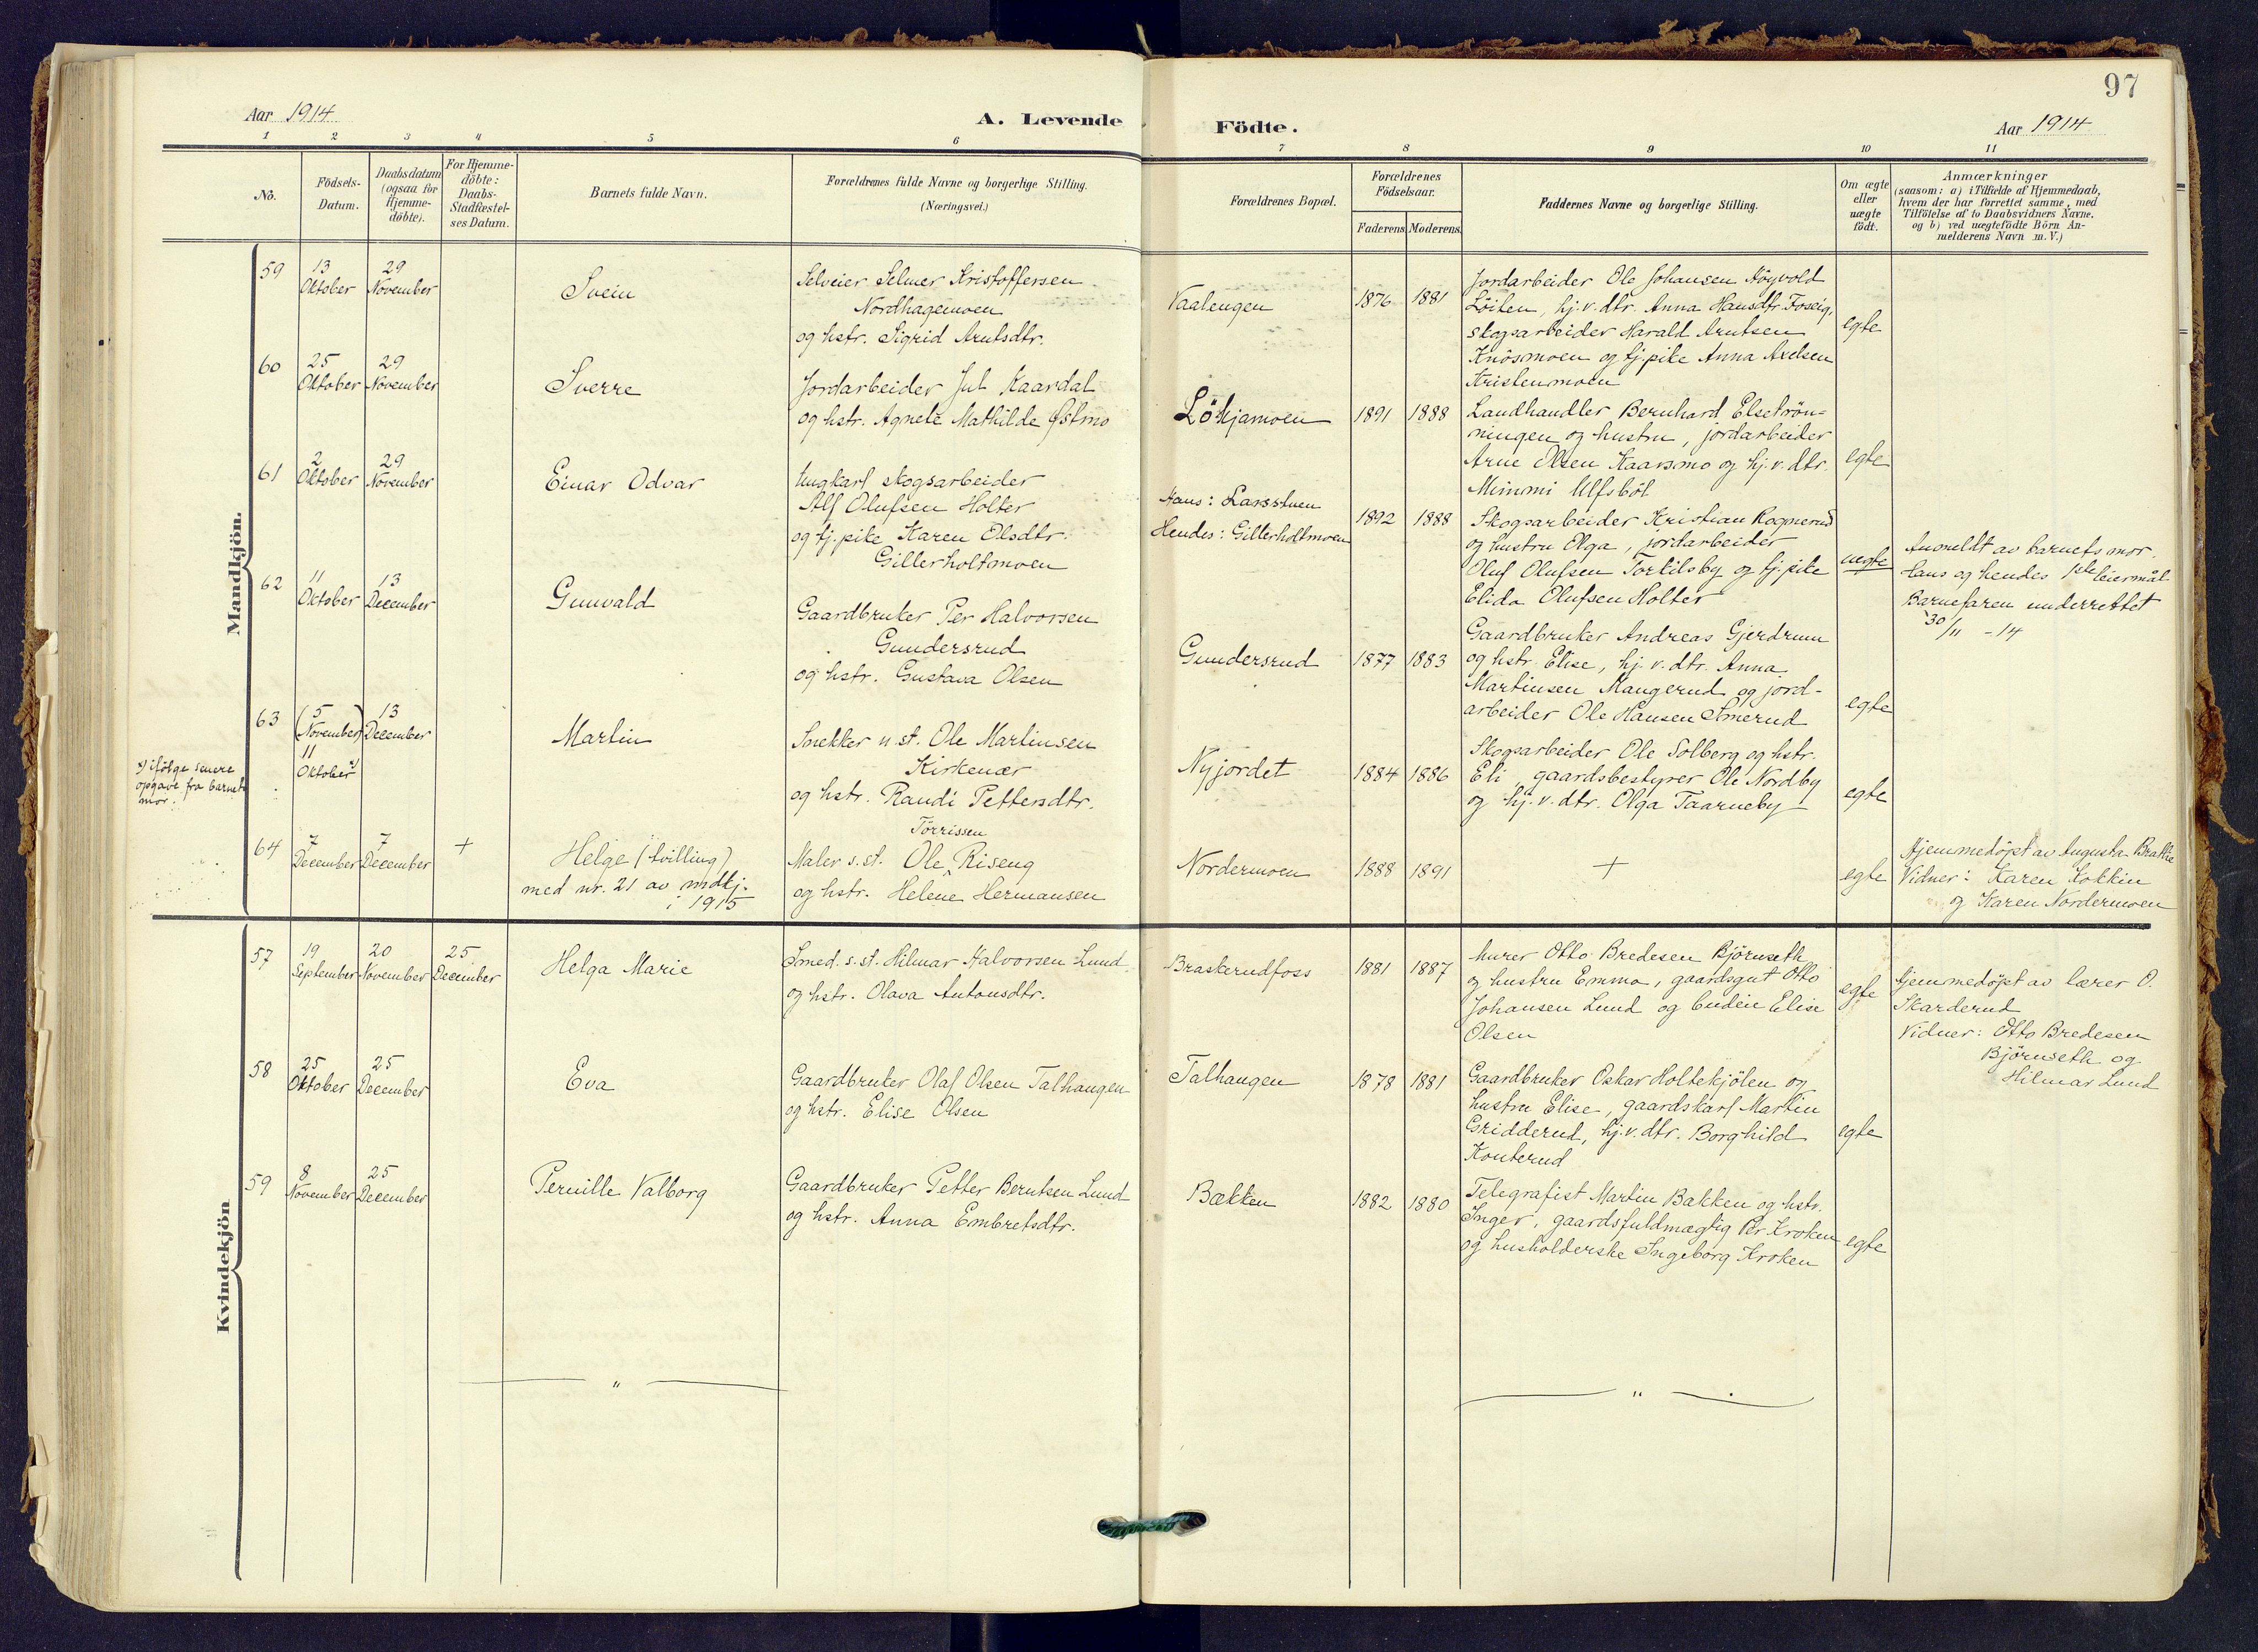 97
Aar 1914
A. Levende
Födte.
Aar 1914
1 2 3 4 5 6 7 8 9 10 11
No.
Födsels-
Datum.
Daabsdatum
(ogsaa for
Hjemme-
döbte).
For Hjemme-
döbte:
Daabs-
Stadfæstel-
ses Datum.
Barnets fulde Navn.
Forældrenes fulde Navne og borgerlige Stilling.
(Næringsvei.)
Forældrenes Bopæl.
Forældrenes
Födselsaar.
Faderens Moderens
Faddernes Navne og borgerlige Stilling.
Om ægte
eller
uægte
födt.
Anmærkninger
(saasom: a) i Tilfælde af Hjemmedaab,
hvem der har forrettet samme, med
Tilföielse af to Daabsvidners Navne.
og b) ved uægtefödte Börn An-
melderens Navn m. V.)
Mandkjön.
59
13
Oktober
29
November
Svein
Selveier Selmer Kristoffersen
Nordhagemoen
og hstr. Sigrid Arntsdtr.
Vaalengen
1876 1881
Jordarbeider Ole Johansen Höyvold
Löiten, hj.v.dtr. Anna Hansdtr. Foseig,
skogsarbeider Harald Arntsen
Knösmoen og tj.pike Anna Axelsen
Kristenmoen
egte
60
25
Oktober
29
November
Sverre
Jordarbeider Jul Kaardal
og hstr. Agnete Mathilde Østmo
Löhjamoen
1891 1888
Landhandler Bernhard Elsetrön-
ningen og hustru, jordarbeider
Arne Olsen Kaarsmo og hj.v.dtr.
Mimmi Ulfsböl
egte
61
2
Oktober
29
November
Einar Odvar
Ungkarl skogsarbeider
Alf Olufsen Holter
og tj.pike Karen Olsdtr.
Gillerholtmoen
Hans: Larsstuen
Hendes: Gillerholtmoen
1892 1888
Skogsarbeider Kristian Rognerud
og hustru Olga, jordarbeider
Oluf Olufsen Torkilsby og tj.pike
Elida Olufsen Holter
uegte
Anmeldt av barnets mor.
Hans og hendes 1ste leiermål
Barnefaren underrettet
30/11 - 14
62
11
Oktober
13
December
Gunvald
Gaardbruker Per Halvorsen
Gundersrud
og hstr. Gustava Olsen
Gundersrud
1877 1883
Gaardbruker Andreas Gjerdrum
og hstr. Elise, hj.v.dtr. Anna
Martinsen Mangerud og jord-
arbeider Ole Hansen Smerud
egte
63
(5
November)
11
Oktober x)
13
December
x) ifölge senere
opgave fra barnets
mor.
Martin
Snekker u.st. Ole Martinsen
Kirkenær
og hstr. Randi Pettersdtr.
Nyjordet
1884 1886
Skogsarbeider Ole Solberg og hstr.
Eli, gaardsbestyrer Ole Nordby
og hj.v.dtr. Olga Taarneby
egte
64
7
December
7
December
+
Helge (tvilling)
med nr. 21 av mdkj.
i 1915
Törrissen
Maler s.st. Ole ^ Riseng
og hstr. Helene Hermansen
Nordermoen
1888 1891
+
egte
Hjemmedöpt av Augusta Brattlie
Vidner: Karen Kokkin
og Karen Nordermoen
Kvindekjön
57
19
September
20
November
25
December
Helga Marie
Smed. s.st. Hilmar Halvorsen Lund
og hstr. Olava Antonsdtr.
Braskerudfoss
1881 1887
Murer Otto Bredesen Björnseth
og hustru Emma, gaardsgut Otto
Johansen Lund og budeie Elise
Olsen
egte
Hjemmedöpt av lærer O.
Skarderud
Vidner: Otto Bredesen
Björnseth og
Hilmar Lund
58
25
Oktober
25
December
Eva
Gaardbruker Olaf Olsen Talhaugen
og hstr. Elise Olsen
Talhaugen
1878 1881
Gaardbruker Oskar Holtekjölen og
hustru Elise, gaardskarl Martin
Gridderud, hj.v.dtr. Borghild
Konterud
egte
59
8
November
25
December
Pernille Valborg
Gaardbruker Petter Berntsen Lund
og hstr. Anna Embretsdtr.
Bækken
1882 1880
Telegrafist Martin Bakken og hstr.
Inger, gaardsfuldmægtig Per Kroken
og husholderske Ingeborg Kroken
egte
— " —
— " —